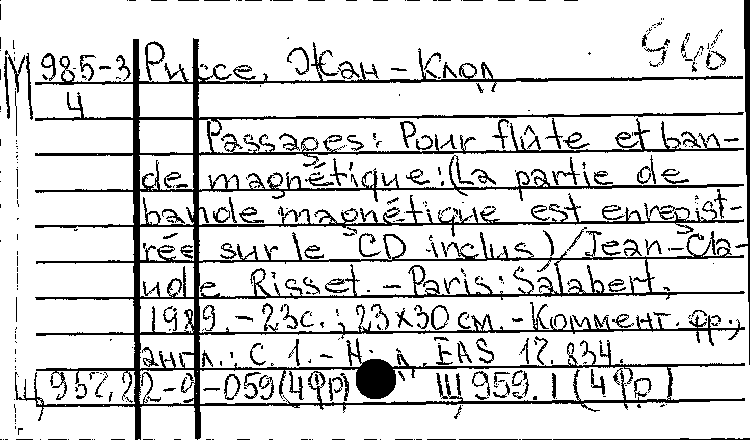 М 985-3 Риссе, Жан-Клод
4
Passages: Pour flûte et ban-
de magnétique: (La partie de
bande magnétique est enregist-
rée sur le CD inclus)/Jean-Cla-
ude Risset. - Paris: Salabert,
1989. - 23с.; 23×30 см. - Коммент. фр.,
англ.: С. 1. - Н. д. EAS 17.834.
Щ957,2 2-9-059(4Фр) Щ959.1(4Фр)